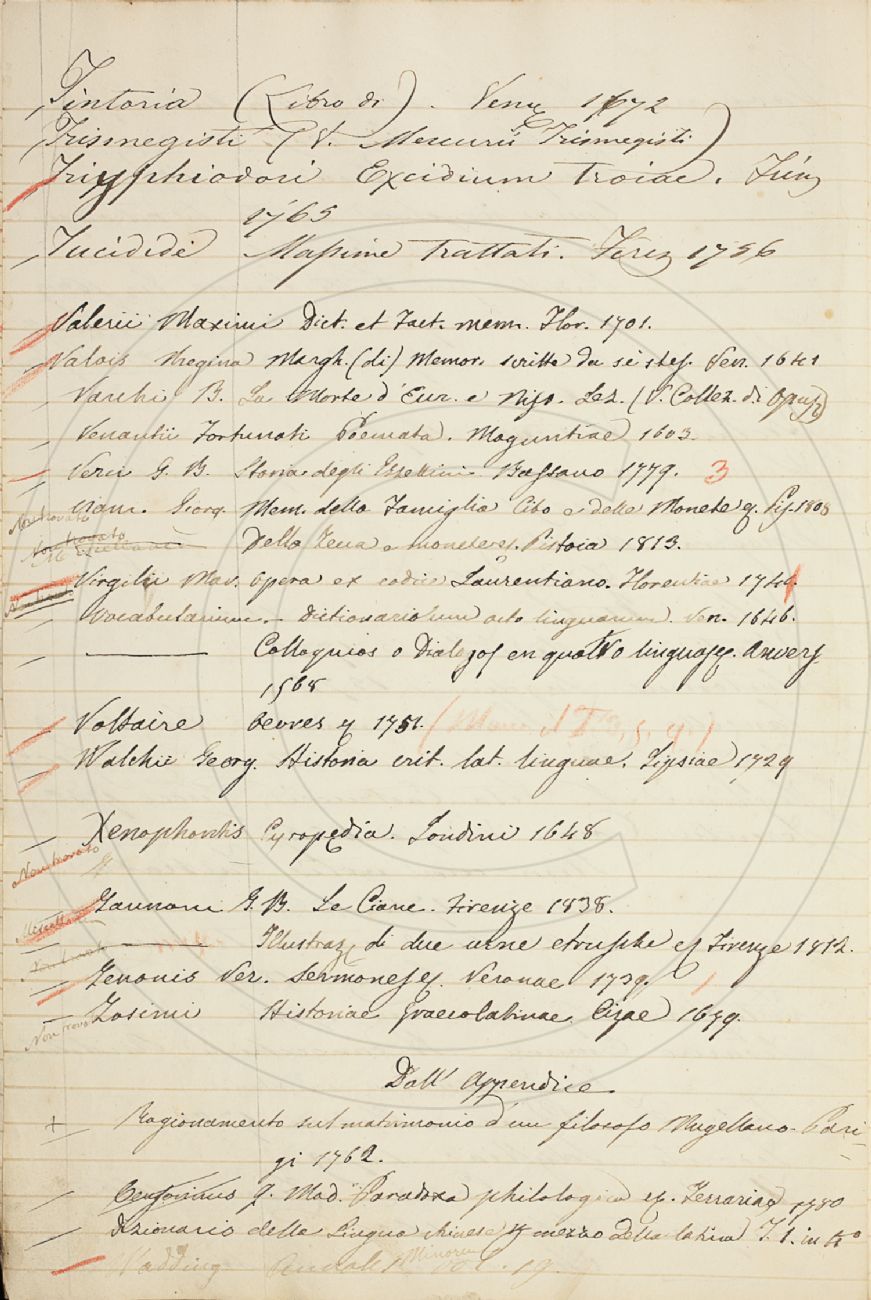 Tintoria (Libro di). Ven. 1672
Trismegisti (V. Mercurii Trismegisti)
Triyphiodori Excidium Troiae. Fir.
1765
Tucidide Massime trattati. 1756
Valerii Maximi Dict. et Fact. mem. Flor. 1701.
Valois Regina Margh. (di) Memor. scritte da sè stes. Ven. 1641
Varchi B. La Morte d'Eur. e Niso. Lez. (V. Collez. di Opusc.)
Venantii Fortunati Poemata. Moguntiae 1603.
Verci G. B. Storia degli Ezzelini. Bassano 1779. 3
Viani Georg Mem. della Famiglia Cibo e delle Monete q. Pis. 1808
Non trovato
Non trovato
Della Zecca e monete Pistoia 1813.
Virgilii Mar. Opera ex codice Laurentiano. Florentiae 1741.
Vocabularium – Dictionariolum octo linguarum. Ven. 1646.
——— Colloquios o Dialogos en quattro linguas Anvers
1568
Voltaire Oevres 1751.
Walchii Georg. Historia crit. lat. linguae. Lipsiae 1729
Xenophontis Cyropędia. Londini 1648
Non trovato
Zannoni G. B. Le Ciane. Firenze 1838.
Miscellanea
——— Illustraz. di due urne etrusche Firenze 1812.
Non trovato
Zenonis Ver. Sermones Veronae 1739.
Zosimi Historiae graecolatinae. Cizae 1679.
Non trovato
Dall' Appendice
+ Ragionamento sul matrimonio d'un filosofo Mugellano. Pari-
gi 1762.
Censorinus q. Mad. Paradoxa philologica Ferrariae 1780
Dizionario della lingua chinese mezzo della latina T. 1. in 4°
Wadding Annales Minorum vol. 19.